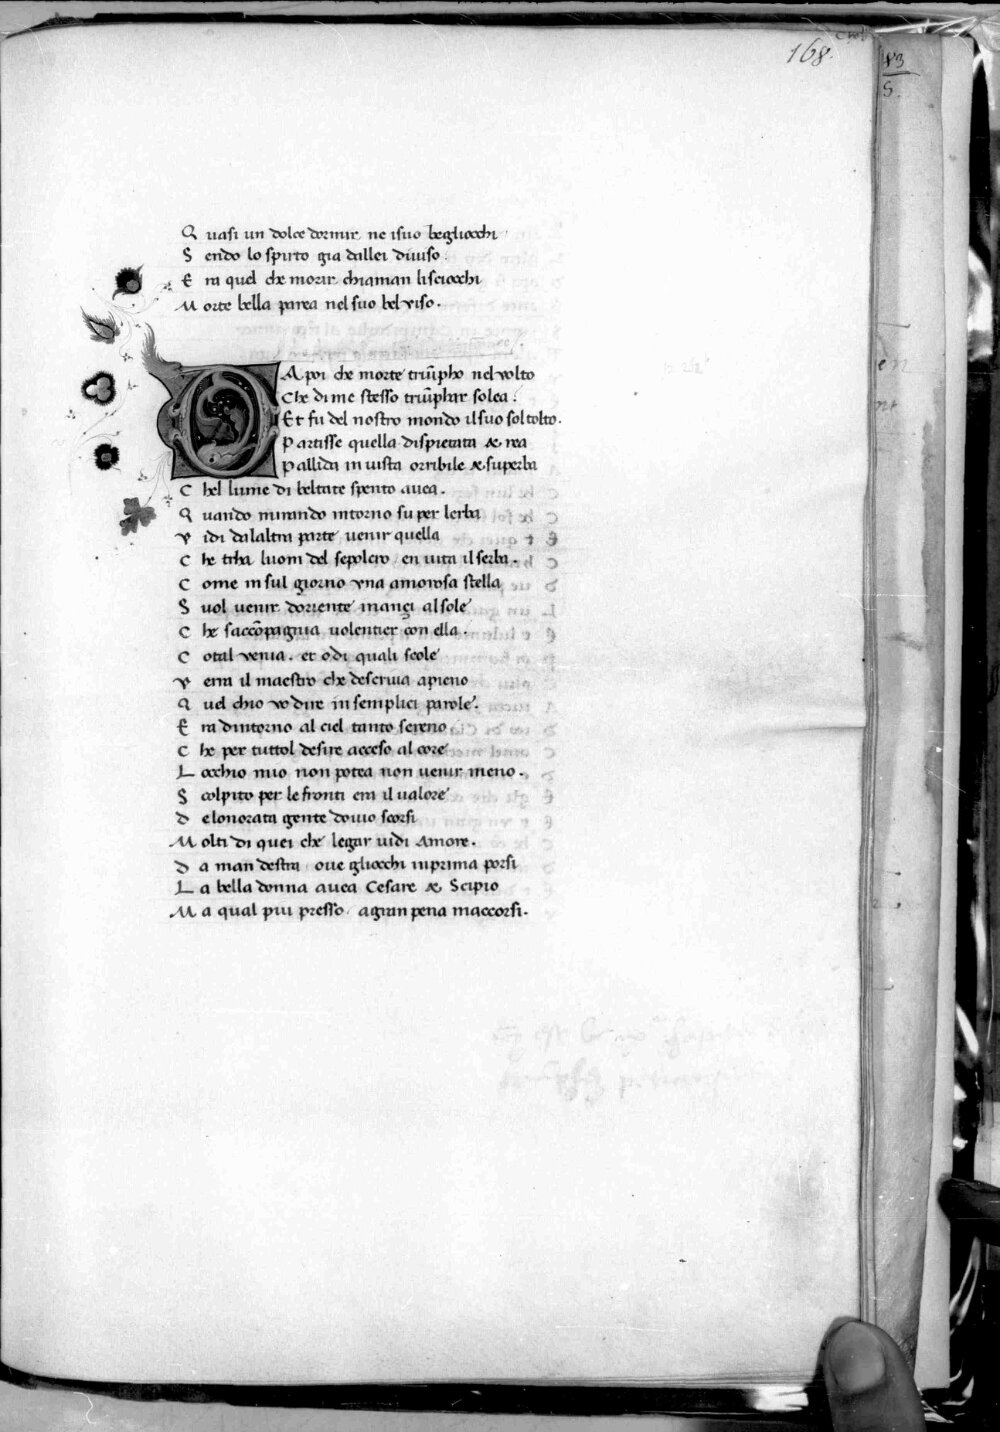 168.
83
S.
Q uasi un dolce dormir ne isuo begliocchi
S endo lo spirto gia dallei diuiso.
E ra quel che morir chiaman lisciocchi
M orte bella parea nel suo bel viso.
D A poi che morte triũpho nel volto
Che di me stesso triũphar solea:
Et fu del nostro mondo il suo sol tolto.
P artisse quella dispietata & rea
P allida in uista orribile & superba
C hel lume di beltate spento auea.
Q uando mirando intorno su per lerba
V idi dalaltra parte uenir quella
C he trha luom del sepolcro / en uita il serba.
C ome in sul giorno vna amorosa stella
S uol uenir doriente inançi al sole
C he saccõpagnia uolentier con ella.
C otal venia. et odi quali scole
V erra il maestro che descriua apieno
Q uel chio vo dire in semplici parole.
E ra dintorno al ciel tanto sereno
C he per tuttol desire acceso al core
L occhio mio non potea non uenir meno.
S colpito per le fronti era il ualore
D elonorata gente douio scorsi
M olti di quei che legar uidi Amore.
D a man destra oue gliocchi inprima porsi
L a bella donna auea Cesare & Scipio
M a qual piu presso / a gran pena maccorsi.